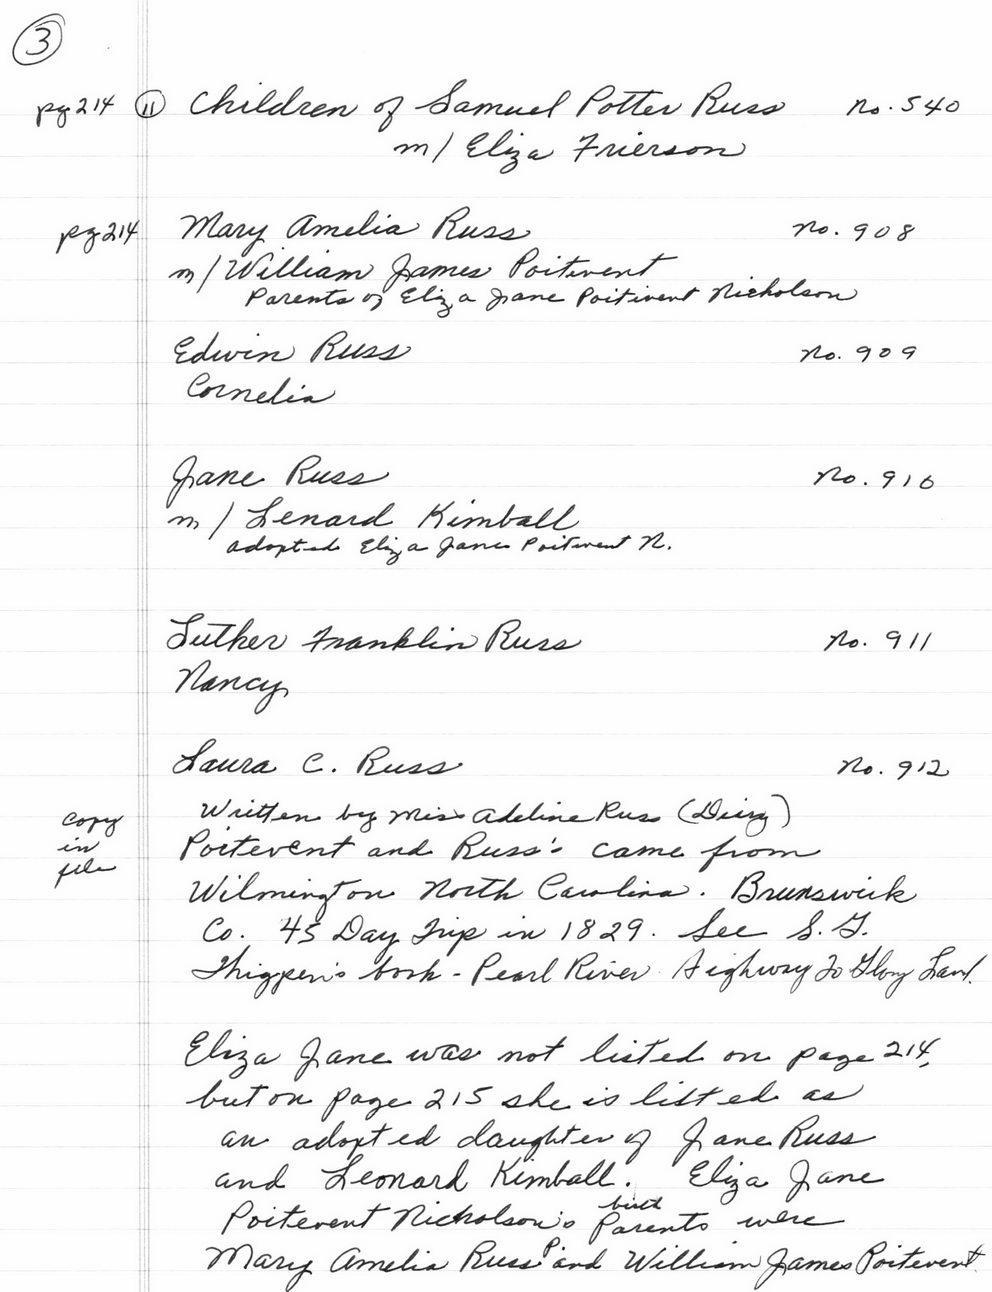 3
pg 214 11 Children of Samuel Potter Russ no. 540
m/ Eliza Frierson
pg 214 Mary Amelia Russ no. 908
m/ William James Poitivent
Parents of Eliza Jane Poitivent Nicholson
Edwin Russ no. 909
Cornelia
Jane Russ no. 910
m/ Lenard Kimball
adopted Eliza Jane Poitivent N.
Luther Franklin Russ no. 911
Nancy
Laura C. Russ no. 912
copy
in
file
Written by Miss Adeline Russ (Diary)
Poitevent and Russ's came from
Wilmington North Carolina. Brunswick
Co. 45 Day Trip in 1829. See S. G.
Thigpen's book - Pearl River Highway To Glory Land.
Eliza Jane was not listed on page 214,
but on page 215 she is listed as
an adopted daughter of Jane Russ
and Leonard Kimball. Eliza Jane
Poitevent Nicholson's birth Parents were
Mary Amelia Russ P. and William James Poitevent